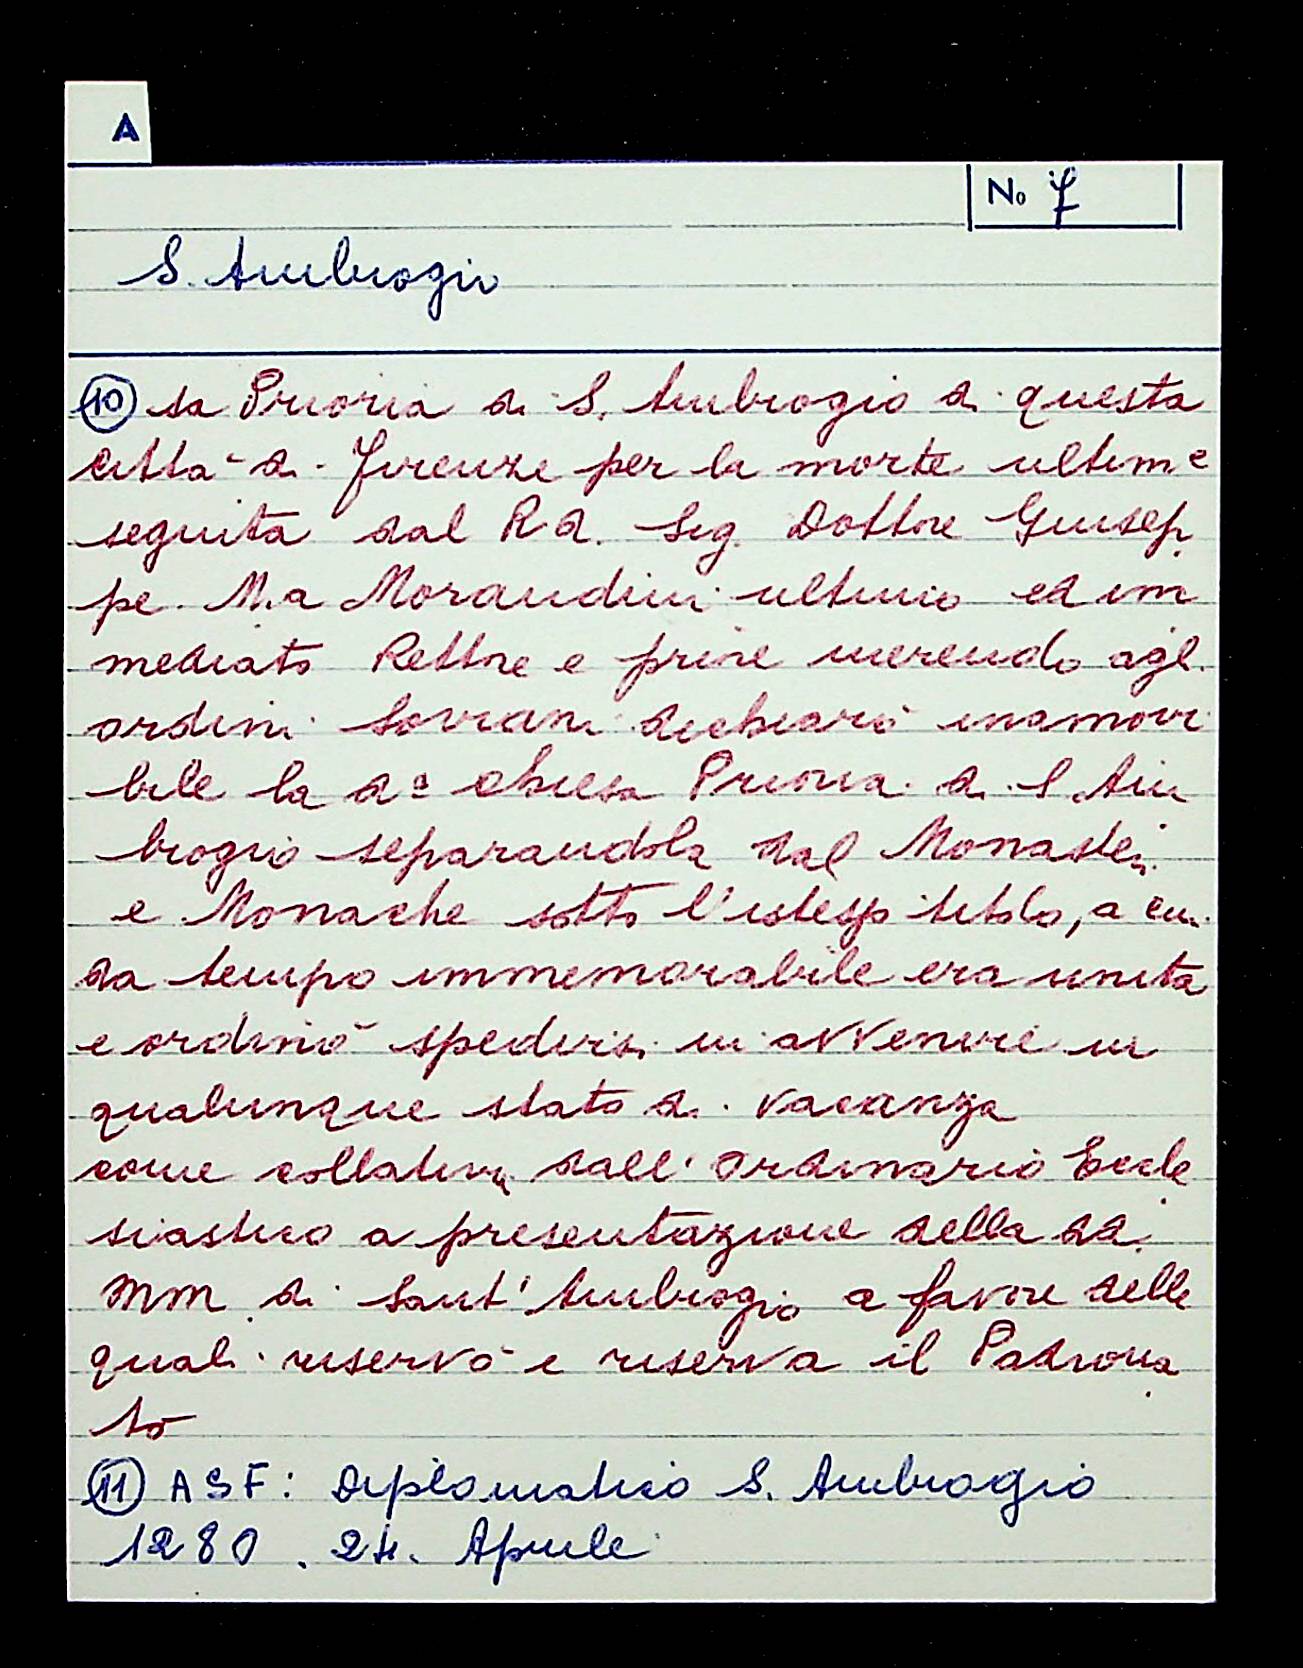 A
No 7
S. Ambrogio
10 La Prioria di S. Ambrogio di questa
città di Firenze per la morte ultime
seguita dal R d. Sig. Dottore Giusep
pe M.a Morandini ultimo ed im
mediato Rettore e priore inerendo agl.
ordini Sovrani dichiarò inamovi
bile la da Chiesa Prioria di S. Am
brogio separandola dal Monaster.
e Monache sotto l'istesso titolo, a cui
da tempo immemorabile era unita
e ordinò spedirsi in avvenire in
qualunque stato di vacanza
come collativa dall'Ordinario Eccle
siastico a presentazione della dd.
MM di Sant'Ambrogio a favore delle
quali riservò e riserva il Padrona
to
11 ASF: Diplomatico S. Ambrogio
1280. 24. Aprile